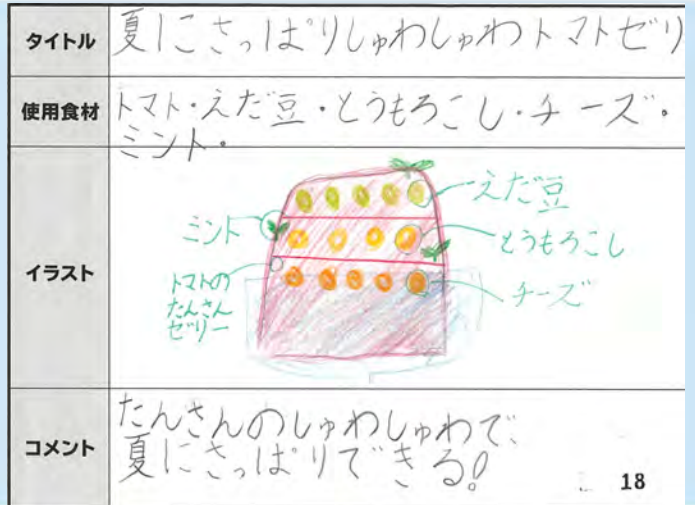 タイトル
夏にさっぱりしゅわしゅわトマトゼリ
使用食材
トマト・えだ豆・とうもろこし・チーズ・
ミント・
イラスト
えだ豆
ミント
とうもろこし
トマトの
たんさん
ゼリー
チーズ
コメント
たんさんのしゅわしゅわで、
夏にさっぱりできる!
18